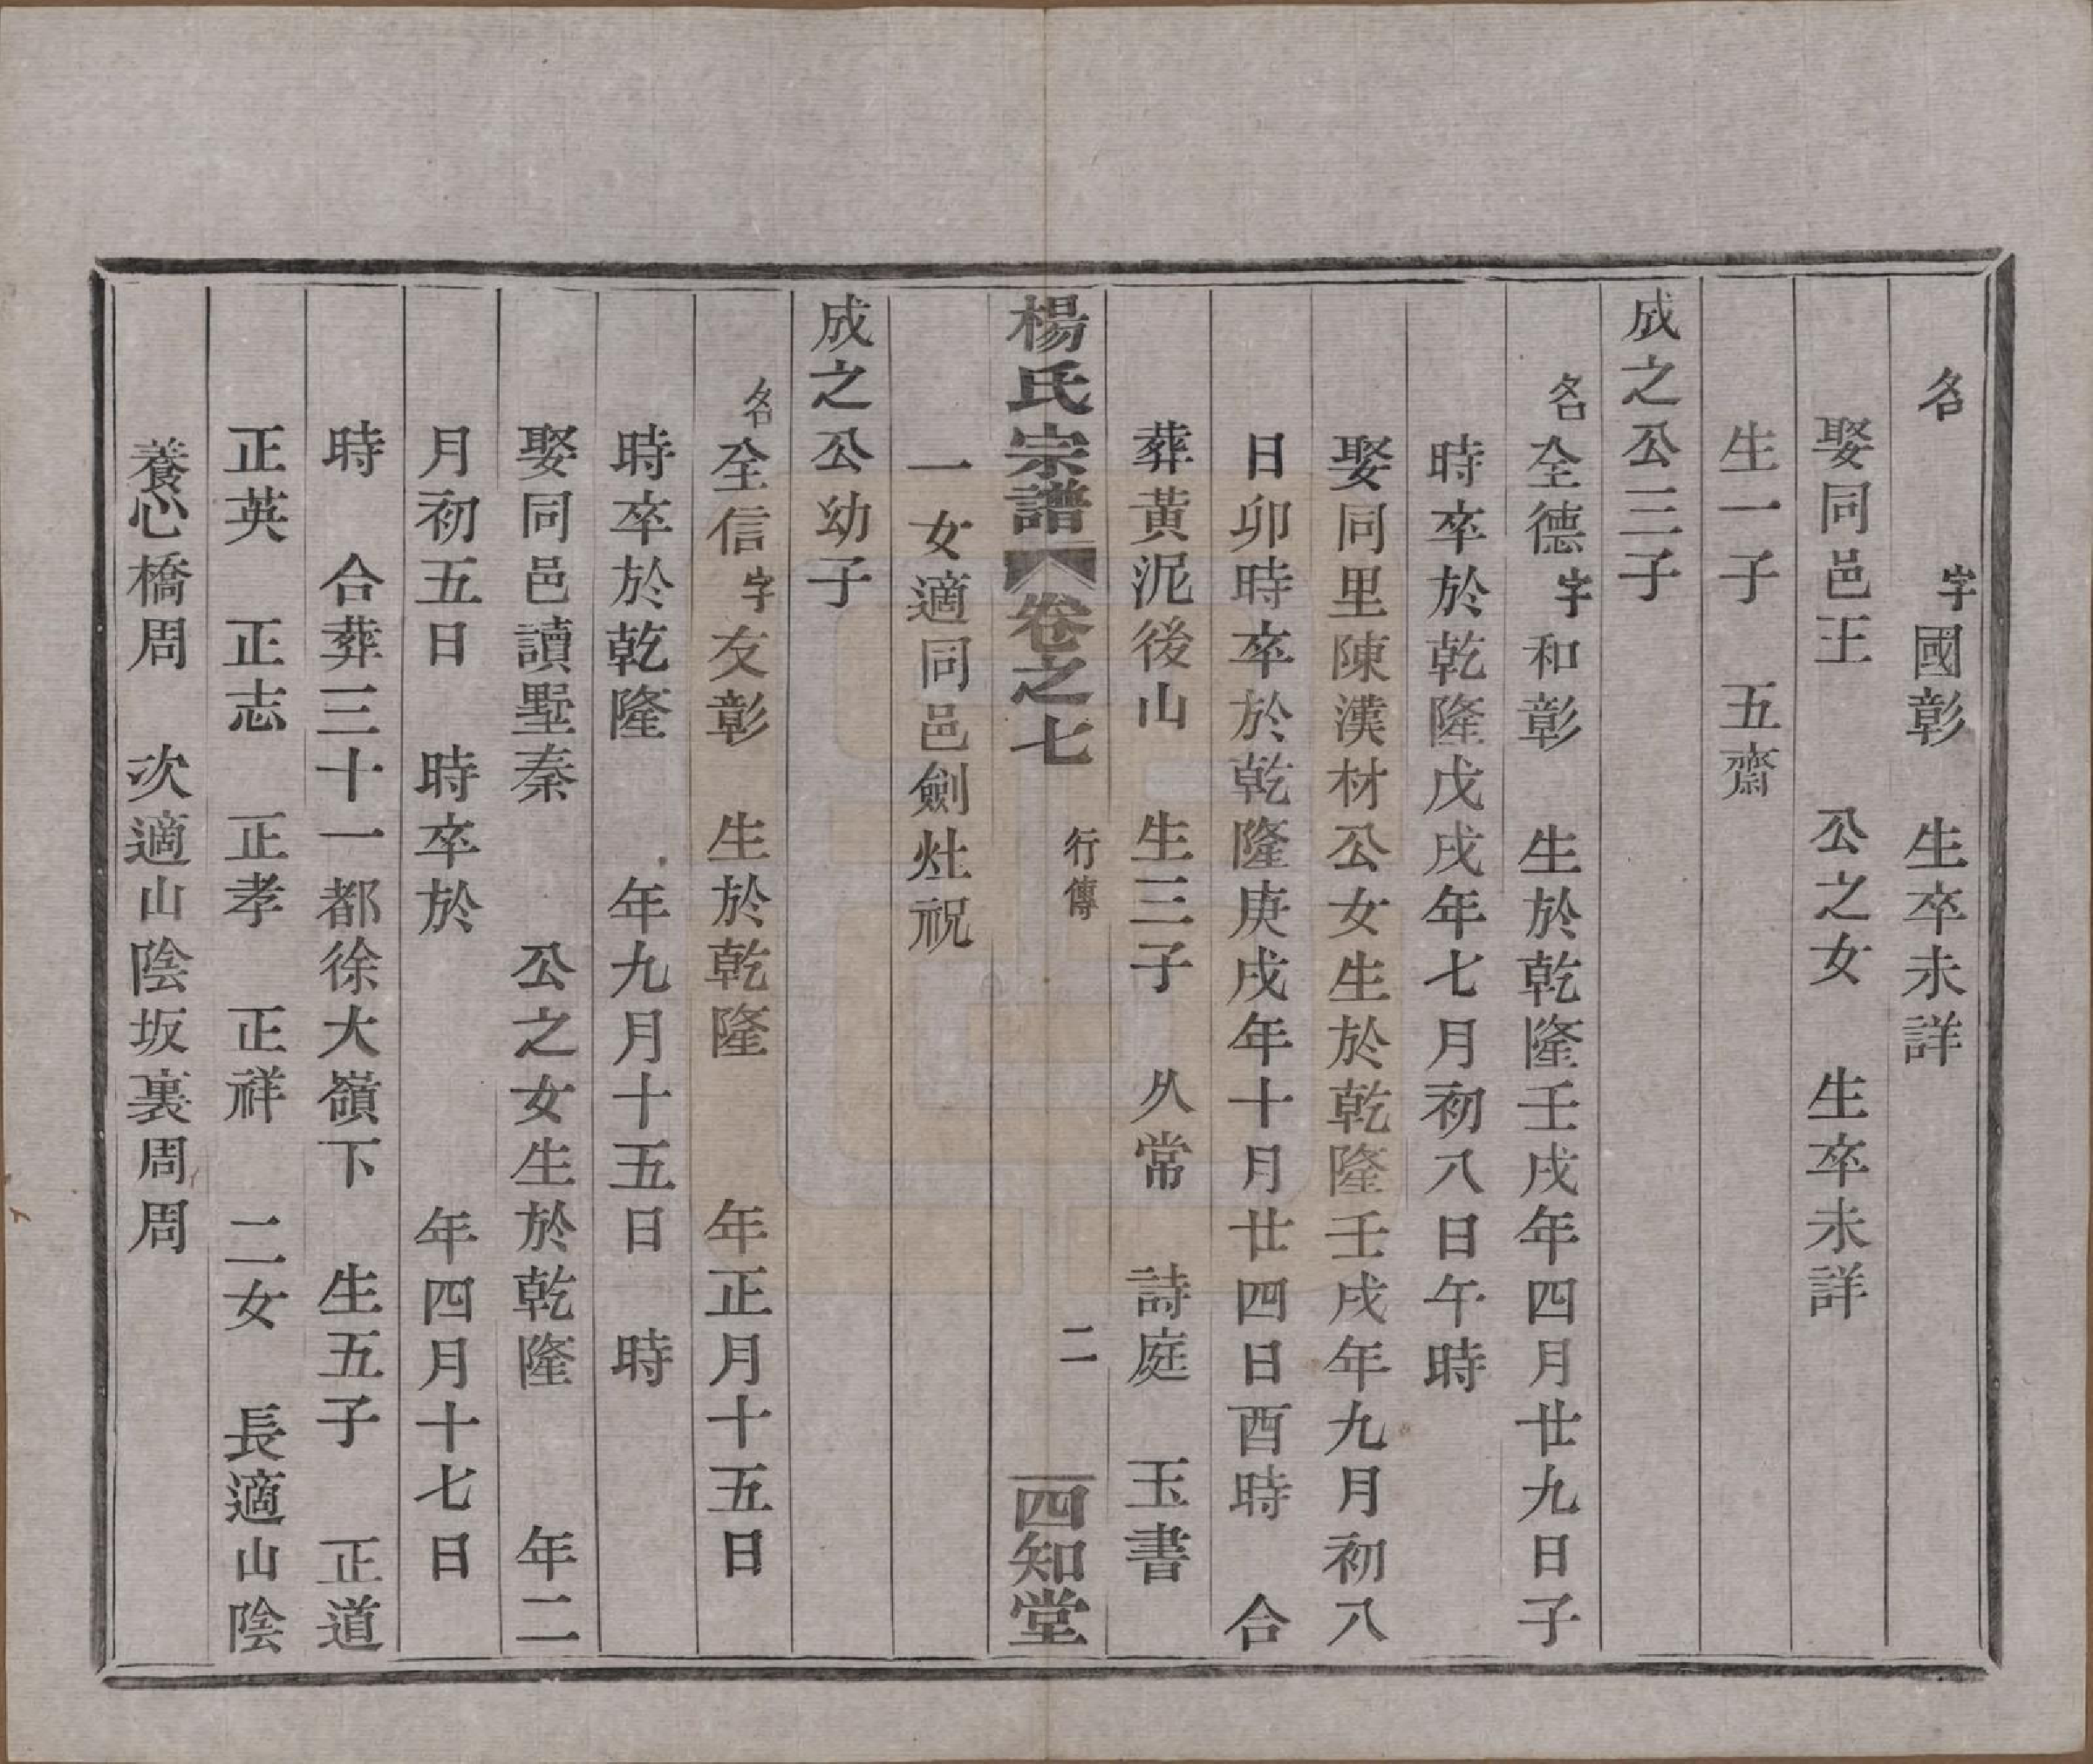 名　字國彰　生卒未詳
娶同邑王　公之女　生卒未詳
生一子　五齋
成之公三子
名全德字和彰　生於乾隆壬戌年四月廿九日子
時卒於乾隆戊戌年七月初八日午時
娶同里陳漢材公女生於乾隆壬戌年九月初八
日卯時卒於乾隆庚戌年十月廿四日酉時　合
葬黃泥後山　生三子　久常　詩庭　玉書
楊氏宗譜　卷之七　行傳　二　四知堂
一女適同邑劍灶祝
成之公幼子
名全信字友彰　生於乾隆　年正月十五日
時卒於乾隆　年九月十五日　時
娶同邑讀墅秦　公之女生於乾隆　年二
月初五日　時卒於　年四月十七日
時　合葬三十一都徐大嶺下　生五子　正道
正英　正志　正孝　正祥　二女　長適山陰
養心橋周　次適山陰坂裏周周